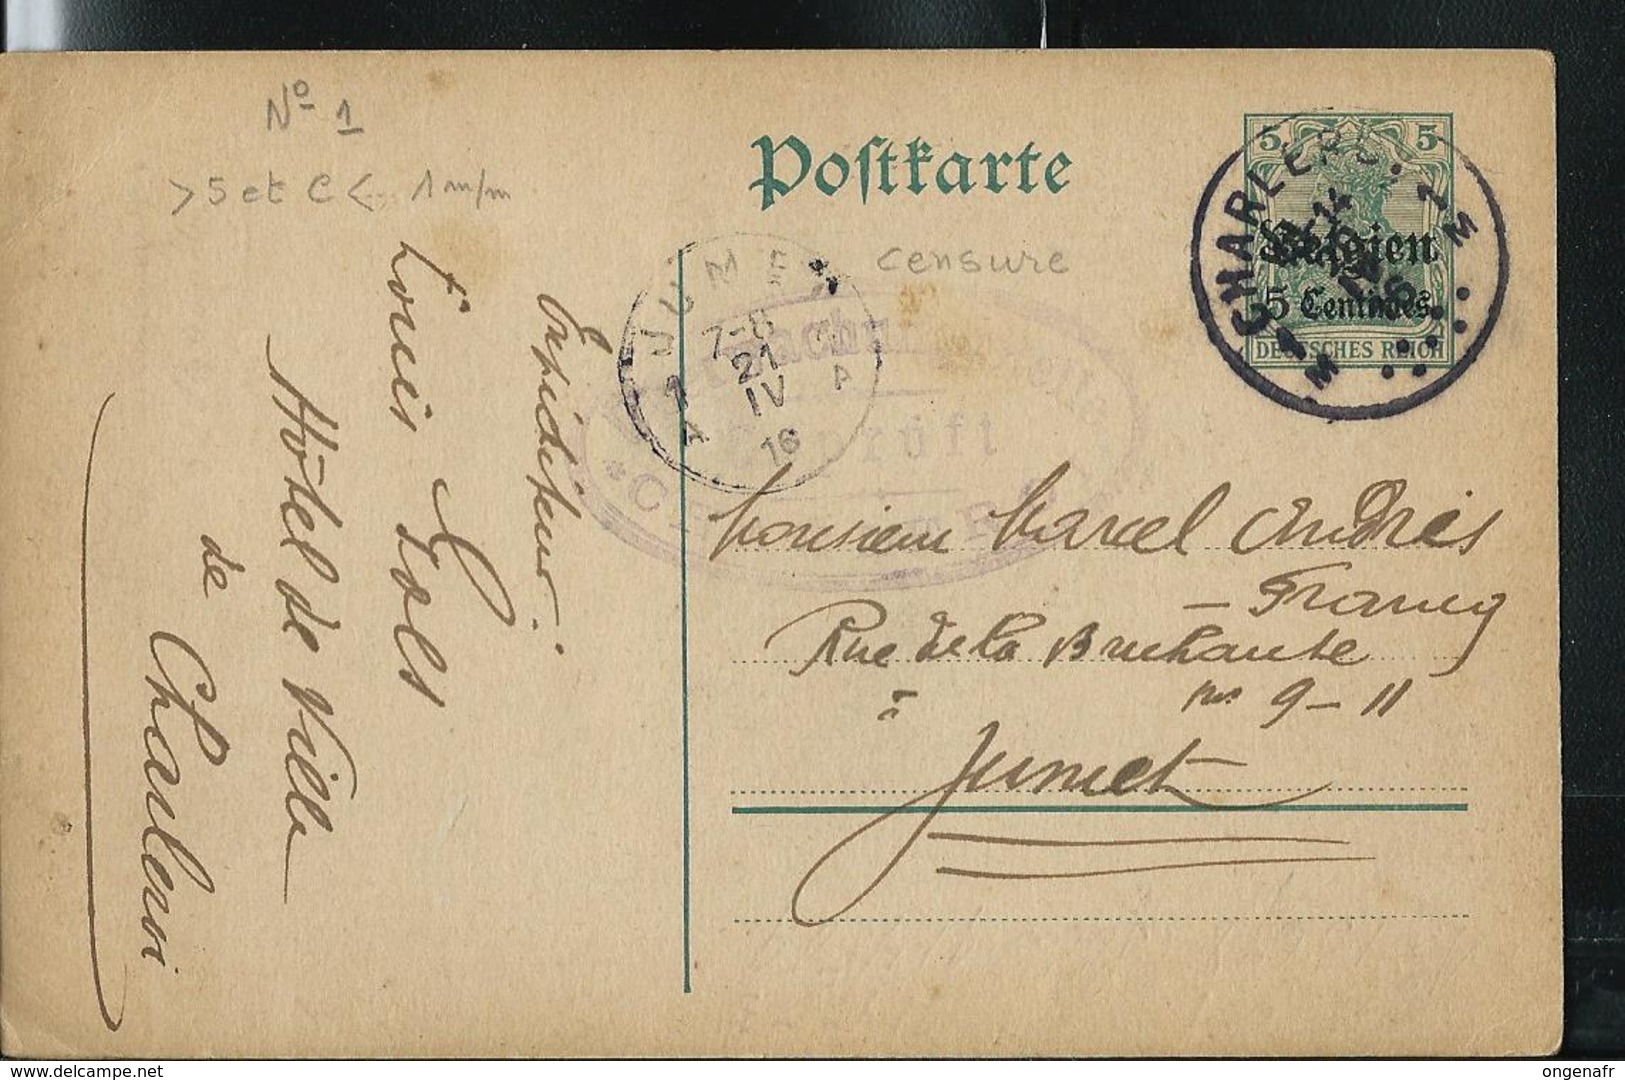 Nº 1
> 5 et C < 1 m/m
Postkarte
censure
5 5
Belgien
5 Centimes
DEUTSCHES REICH
CHARLEROI 1
JUMET
7-8
21
IV
16
Geprüft
Expéditeur:
Louis
Hôtel de Ville
de
Charleroi
Monsieur Marcel Andris
- Francq
Rue de la Bruhaute
à nos 9-11
Jumet
www.delcampe.net
ongenafr